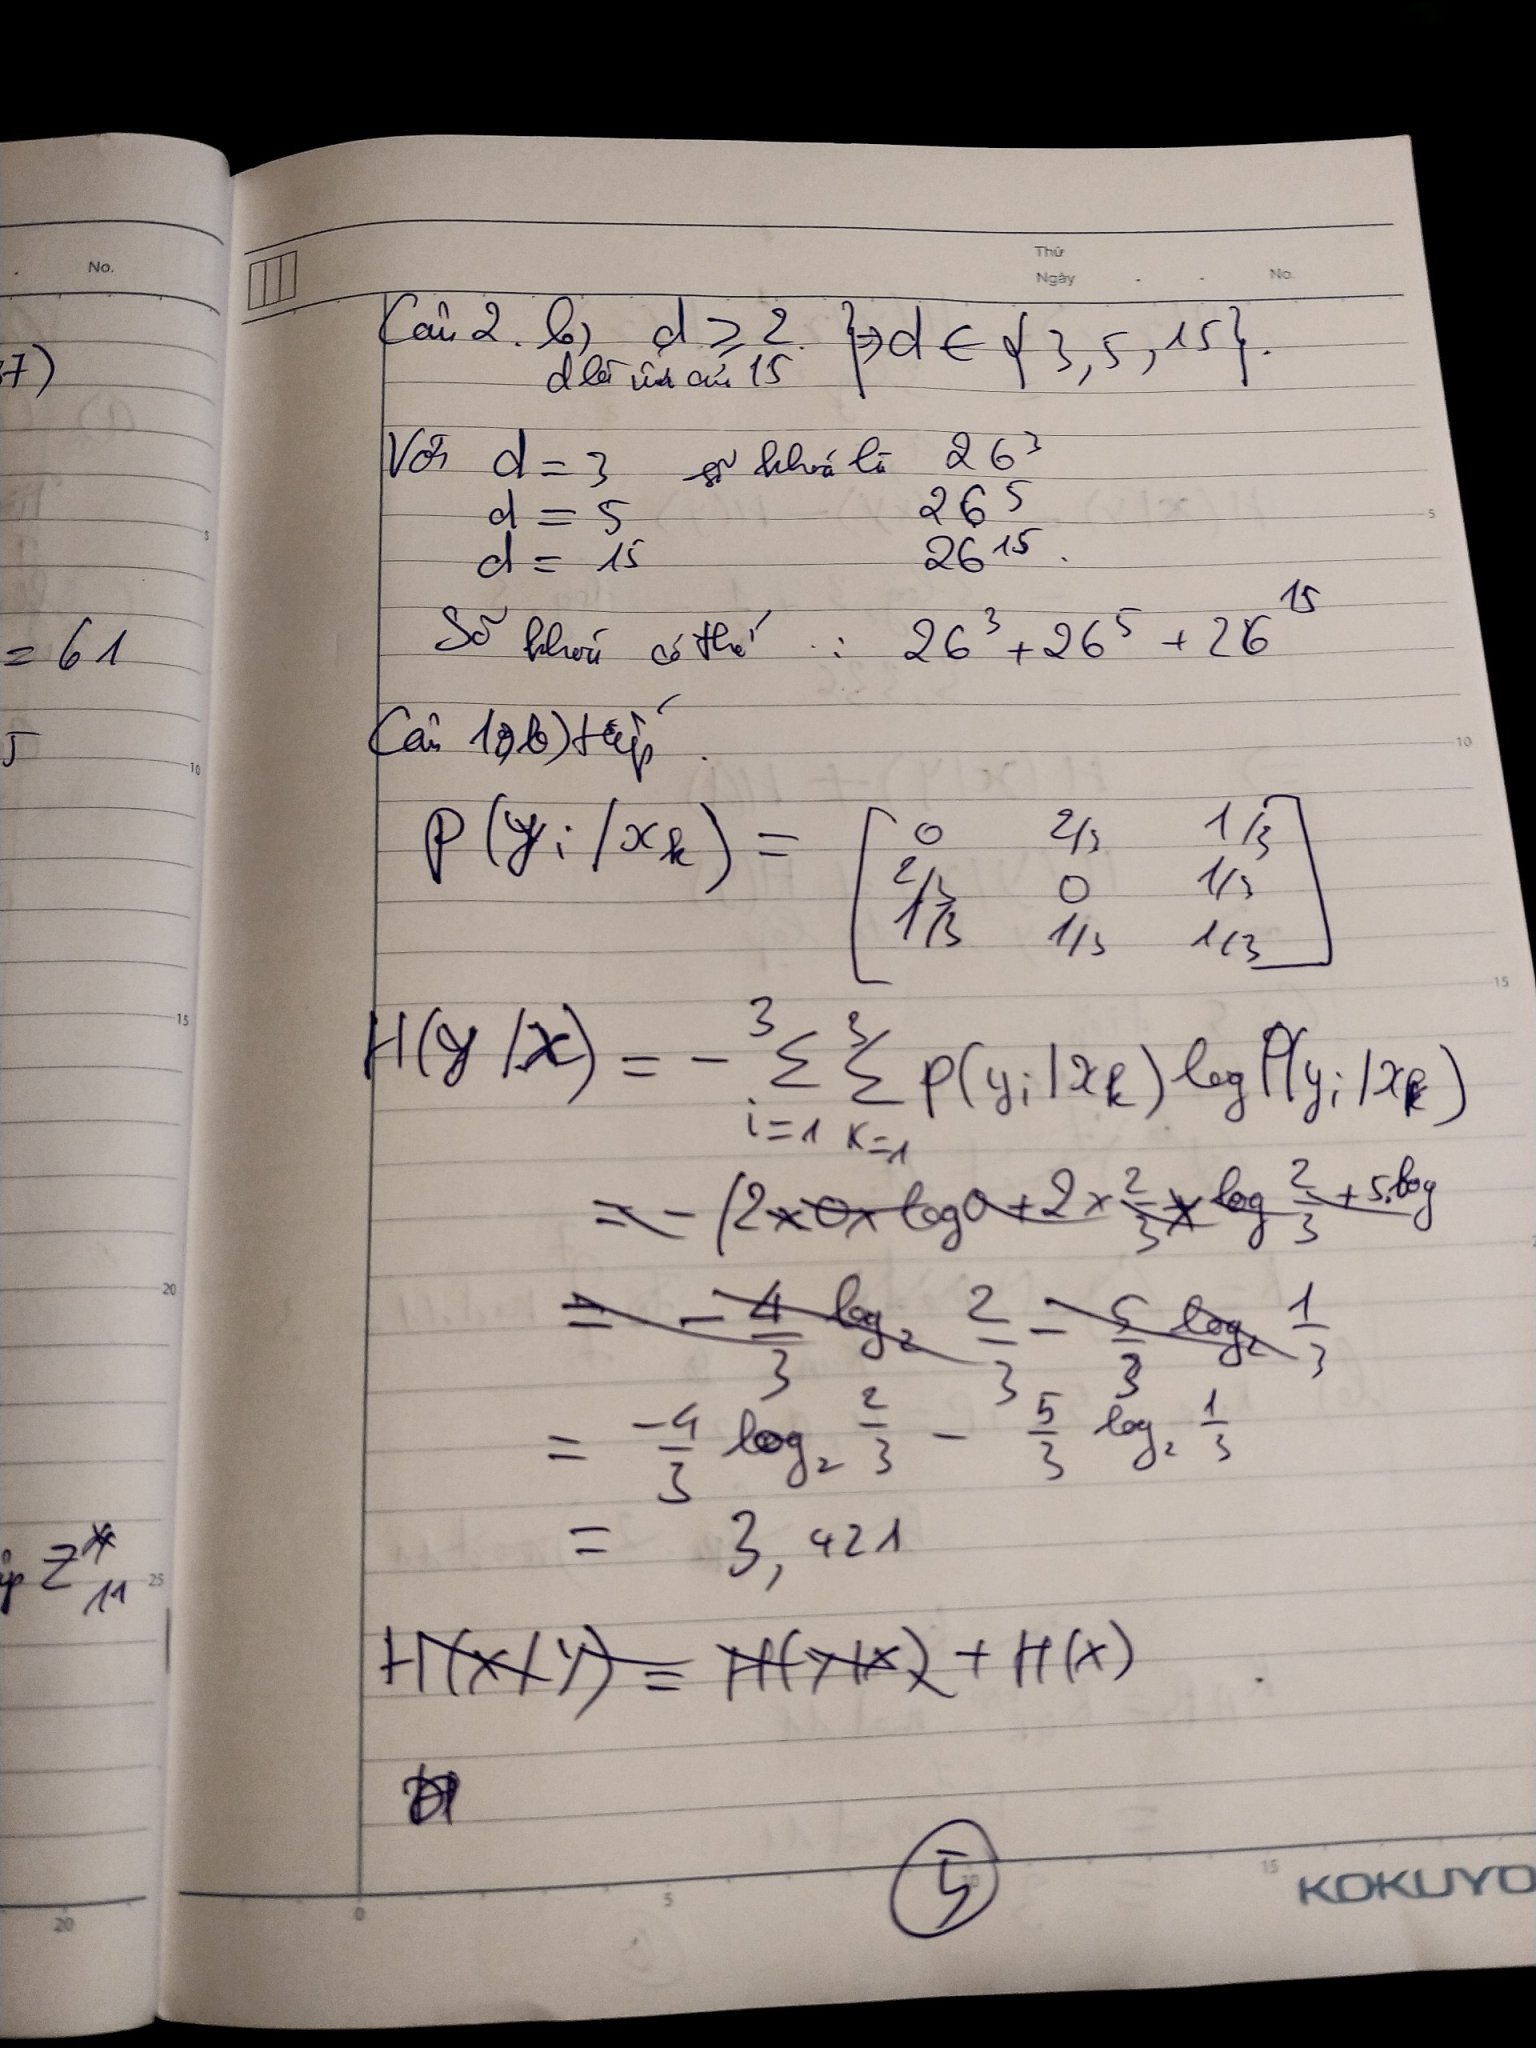 No.
Thứ
Ngày . . No.
37)
= 61
5
Z*11
Câu 2. b, d ⩾ 2. } ⇒ d ∈ { 3, 5, 15 }.
d là ước của 15
Với d = 3 số khoá là 26^3
d = 5 26^5
d = 15 26^15 .
Số khoá có thể : 26^3 + 26^5 + 26^15
Câu 1, b) tiếp .
P(y_i / x_k) = [ 0 2/3 1/3
2/3 0 1/3
1/3 1/3 1/3 ]
H(Y/X) = - 3Σi=1 3Σk=1 P(y_i | x_k) log P(y_i / x_k)
= - (2 x 0 x log 0 + 2 x 2/3 x log 2/3 + 5.log
= - 4/3 log_2 2/3 - 5/3 log_2 1/3
= -4/3 log_2 2/3 - 5/3 log_2 1/3
= 3,421
H(X/Y) = H(Y/X) + H(X)
5
KOKUYO
5
10
15
20
25
20
5
10
15
0
5
10
15